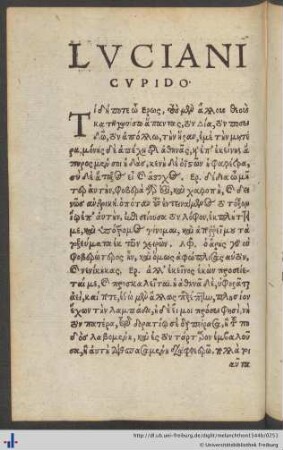 LVCIANI
CVPIDO·
Τί δήποτε ὦ Ἔρως, τοὺς μὲν ἄλλους θεοὺς
κατηγωνίσω ἅπαντας, τὸν Δία, τὸν ποσει
δῶ, τὸν ἀπόλλω, τὴν ῥέαν, ἐμὲ τὴν μητέ
ρα, μόνης δὲ ἀπέχῃ τῆς ἀθηνᾶς, καὶ ἐπ' ἐκείνης ἄ
πυρος μέν σοι ἡ δᾷς, κενὴ δὲ οἰστῶν ἡ φαρέτρα,
σὺ δὲ ἄτοξος εἶ καὶ ἄστοχος. Ἐρ. δέδια ὦ μῆ
τερ αὐτὴν, φοβερὰ γάρ ἐστι, καὶ χαροπὴ, καὶ δει
νῶς ἀνδρική. ὁπόταν γοῦν ἐντεινάμενος τὸ τόξον
ἴω ἐπ' αὐτὴν, ἐπισείουσα τὸν λόφον, ἐκπλήττει
με, καὶ ὑπότρομος γίνομαι, καὶ ἀποῤῥεῖ μου τὰ
τοξεύματα ἐκ τῶν χειρῶν. Ἀφ. ὁ ἄρης γὰρ οὐ
φοβερώτερος ἦν, καὶ ὅμως ἀφώπλισας αὐτὸν,
καὶ νενίκηκας. Ἐρ. ἀλλ' ἐκεῖνος ἑκὼν προσίε
ταί με, καὶ προσκαλεῖται· ἡ ἀθηνᾶ δὲ, ὑφορᾶται
ἀεὶ, καί ποτε, ἐγὼ μὲν ἄλλως παρέπτην, πλησίον
ἔχων τὴν λαμπάδα, ἡ δὲ εἴ μοι πρόσει φησὶ, νὴ
τὸν πατέρα, τῷ δορατίῳ σε διαπείρασα, ἢ τοῦ πο
δὸς λαβομένη, καὶ ἐς τὸν τάρταρον ἐμβαλοῦ
σα, ἢ αὐτὴ διασπασαμένη διαφθερῶ. πολλὰ τοι
αῦτα
http://dl.ub.uni-freiburg.de/diglit/melanchthon1544b/0251
© Universitätsbibliothek Freiburg